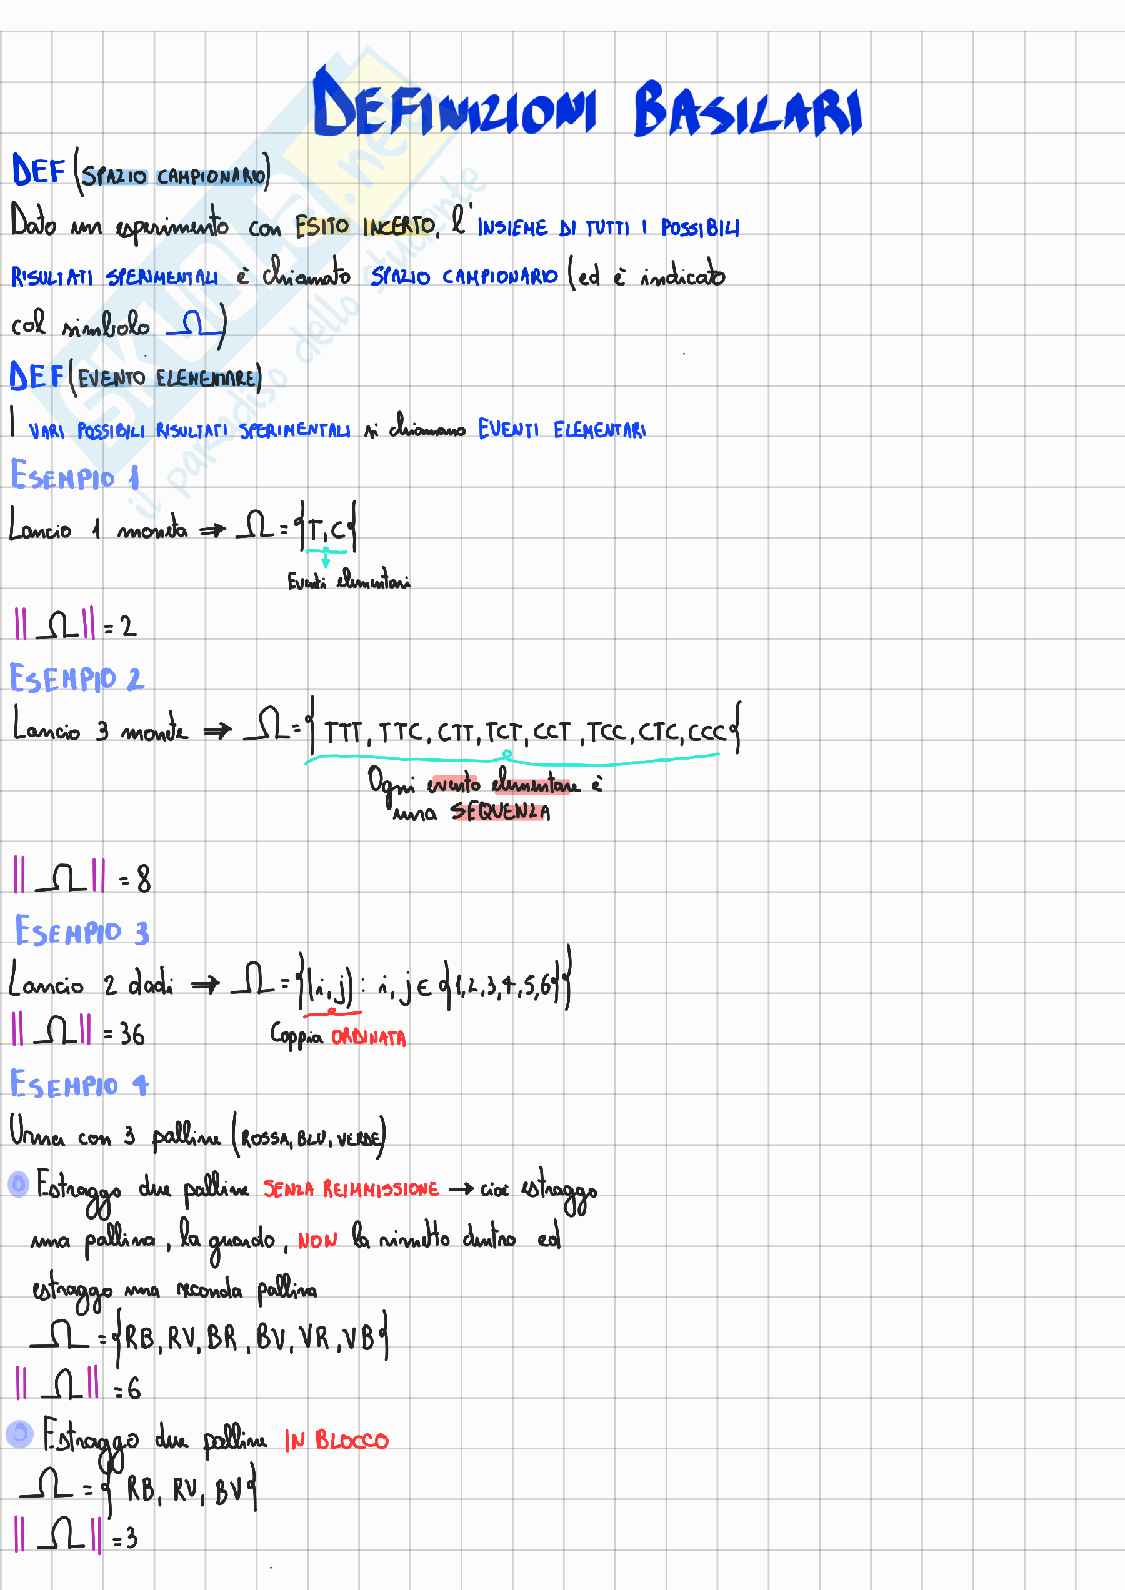 DEFINIZIONI BASILARI
DEF (SPAZIO CAMPIONARIO)
Dato un esperimento con ESITO INCERTO, l'INSIEME DI TUTTI I POSSIBILI
RISULTATI SPERIMENTALI è chiamato SPAZIO CAMPIONARIO (ed è indicato
col simbolo Ω)
DEF (EVENTO ELEMENTARE)
I VARI POSSIBILI RISULTATI SPERIMENTALI si chiamano EVENTI ELEMENTARI
ESEMPIO 1
Lancio 1 moneta ⇒ Ω = {T, C}
Eventi elementari
||Ω|| = 2
ESEMPIO 2
Lancio 3 monete ⇒ Ω = { TTT, TTC, CTT, TCT, CCT, TCC, CTC, CCC}
Ogni evento elementare è
una SEQUENZA
||Ω|| = 8
ESEMPIO 3
Lancio 2 dadi ⇒ Ω = {(i, j) : i, j ∈ {1,2,3,4,5,6}}
||Ω|| = 36 Coppia ORDINATA
ESEMPIO 4
Urna con 3 palline (ROSSA, BLU, VERDE)
Estraggo due palline SENZA REIMMISSIONE → cioè estraggo
una pallina, la guardo, NON la rimetto dentro ed
estraggo una seconda pallina
Ω = {RB, RV, BR, BV, VR, VB}
||Ω|| = 6
Estraggo due palline IN BLOCCO
Ω = { RB, RV, BV}
||Ω|| = 3
SKUOLA.net
il paradiso dello studente